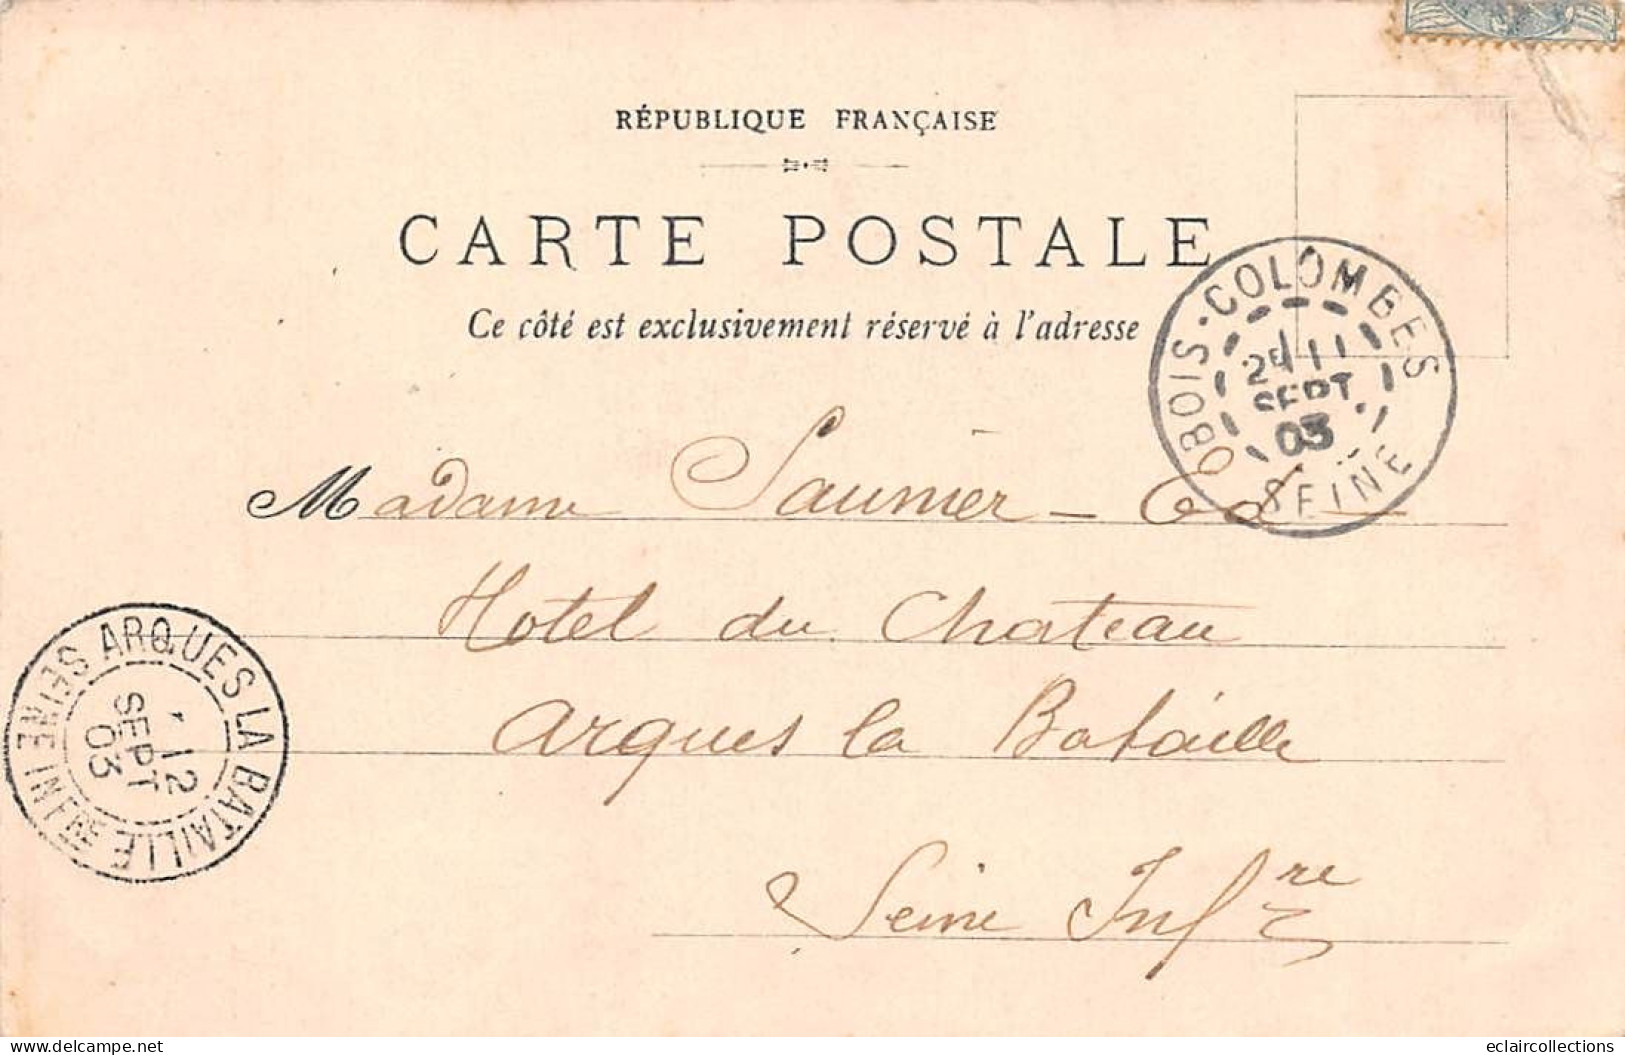 RÉPUBLIQUE FRANÇAISE
CARTE POSTALE
Ce côté est exclusivement réservé à l'adresse
BOIS-COLOMBES
2E 11
SEPT.
03
SEINE
Madame Saunier - Ed
Hotel du Chateau
Arques la Bataille
Seine Infre
ARQUES LA BATAILLE
12
SEPT
03
SEINE INFRE
delcampe.net
eclaircollections